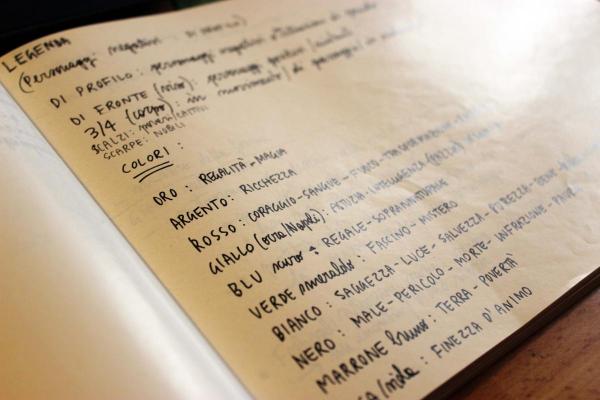 LEGENDA
(Personaggi negativi
DI PROFILO: personaggi negativi
DI FRONTE (viso): personaggi positivi /
3/4 (corpo): in movimento / di passaggio in
SCALZI: CATTIVI
SCARPE: NOBILI
COLORI:
ORO: REGALITÀ - MAGIA
ARGENTO: RICCHEZZA
ROSSO: CORAGGIO - SANGUE - FUOCO -
GIALLO (ocra/Napoli): ASTUZIA - INTELLIGENZA
BLU scuro: REGALE - SOPRANNATURALE
VERDE smeraldo: FASCINO - MISTERO
BIANCO: SAGGEZZA - LUCE - SALVEZZA - PUREZZA - BENE
NERO: MALE - PERICOLO - MORTE - INFRAZIONE -
MARRONE bruno: TERRA - POVERTÀ
/viola: FINEZZA D'ANIMO